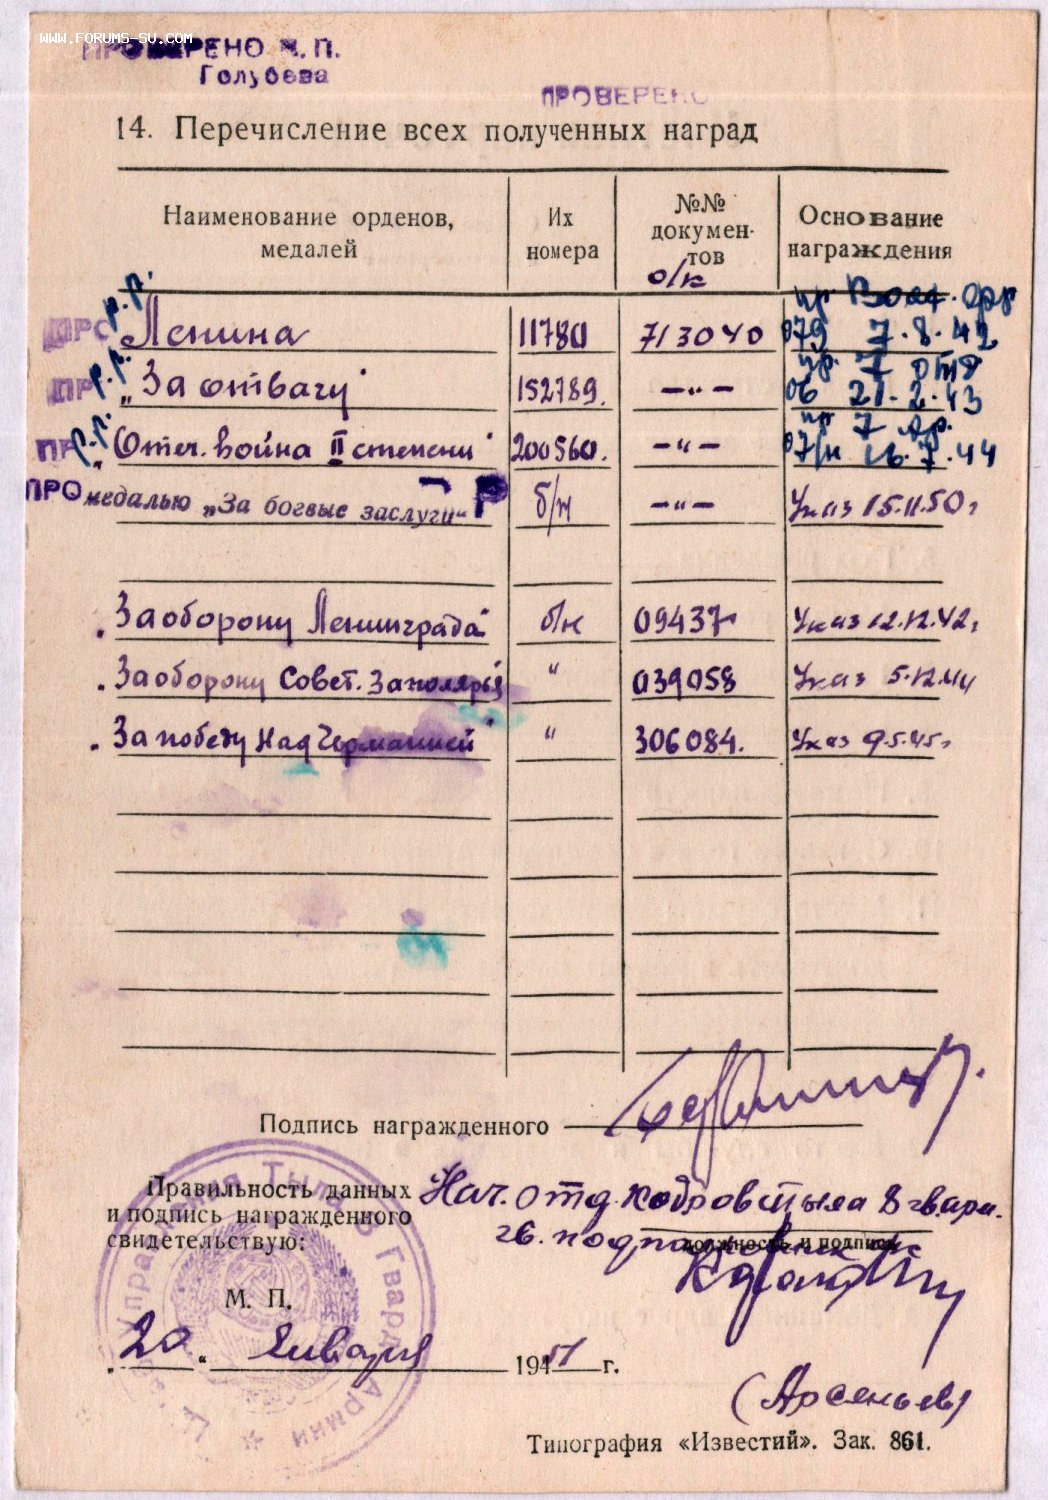 WWW.FORUMS-SU.COM
ПРОВЕРЕНО Н. П.
Голубева
ПРОВЕРЕНО
14. Перечисление всех полученных наград
Наименование орденов, медалей
Их номера
№№ документов
Основание награждения
о/к
р.р.
пр. Волх. фр
ПРО Ленина 11780 713040 079 7.8.42
р.р.
пр. 7
ПР „За отвагу" 152789. —"— 06 21.2.43
р.р.
пр 7
ПР „Отеч. война II степени" 200560. —"— 07/н 16.7.44
ПРО медалью „За боевые заслуги" Р б/н —"— Указ 15.11.50г
„За оборону Ленинграда" б/н 09437 Указ 22.12.42г
„За оборону Совет. Заполярья " 039058 Указ 5.12.44
„За победу над Германией" " 306084. Указ 9.5.45г
Подпись награжденного
Правильность данных
и подпись награжденного
свидетельствую:
Нач. отд. кадров тыла 8 гварм.
гв. подполковник
должность и подпись
М. П.
„20" января 1951 г.
(Арсеньев)
Управления Тыла 8 Гвард. Армии
Типография «Известий». Зак. 861.